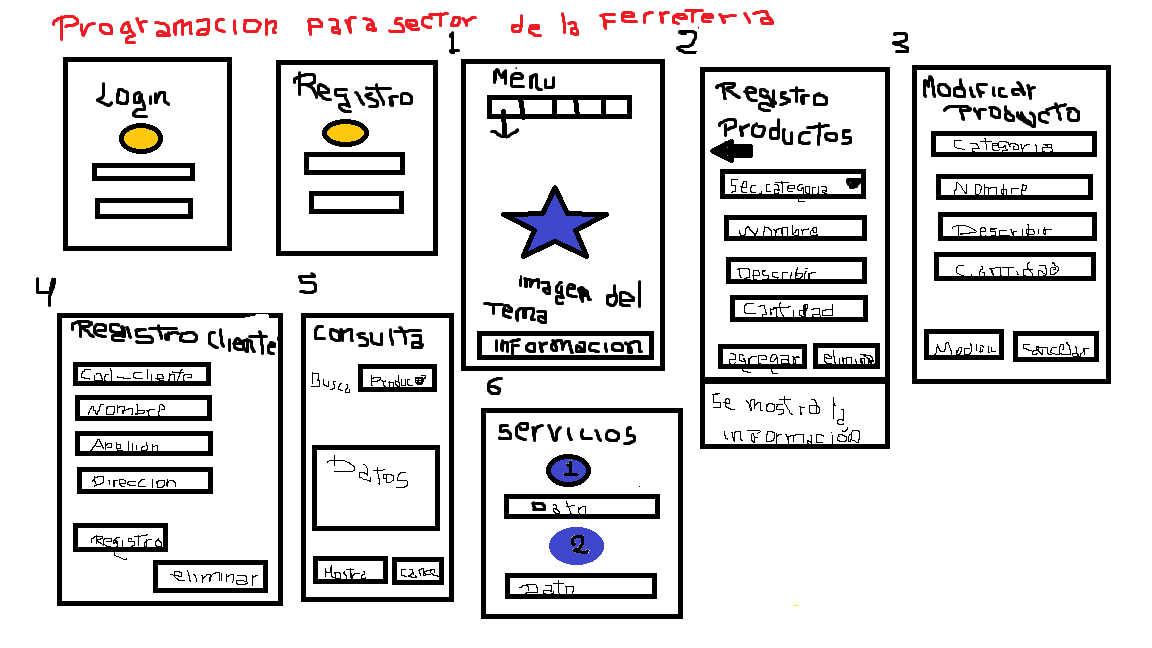 Programacion para sector de la Ferreteria
Login
Registro
1
Menu
imagen del
Tema
informacion
2
Registro
Productos
Sec.categoria
Nombre
Describir
Cantidad
agregar
Se mostra la
información
3
Modificar
Producto
Categoria
Nombre
Describir
Cantidad
Cancelar
4
Registro cliente
Cod-cliente
Nombre
Direccion
Registro
eliminar
5
Consulta
Busca
Datos
Mostra
6
Servicios
1
Dato
2
Dato